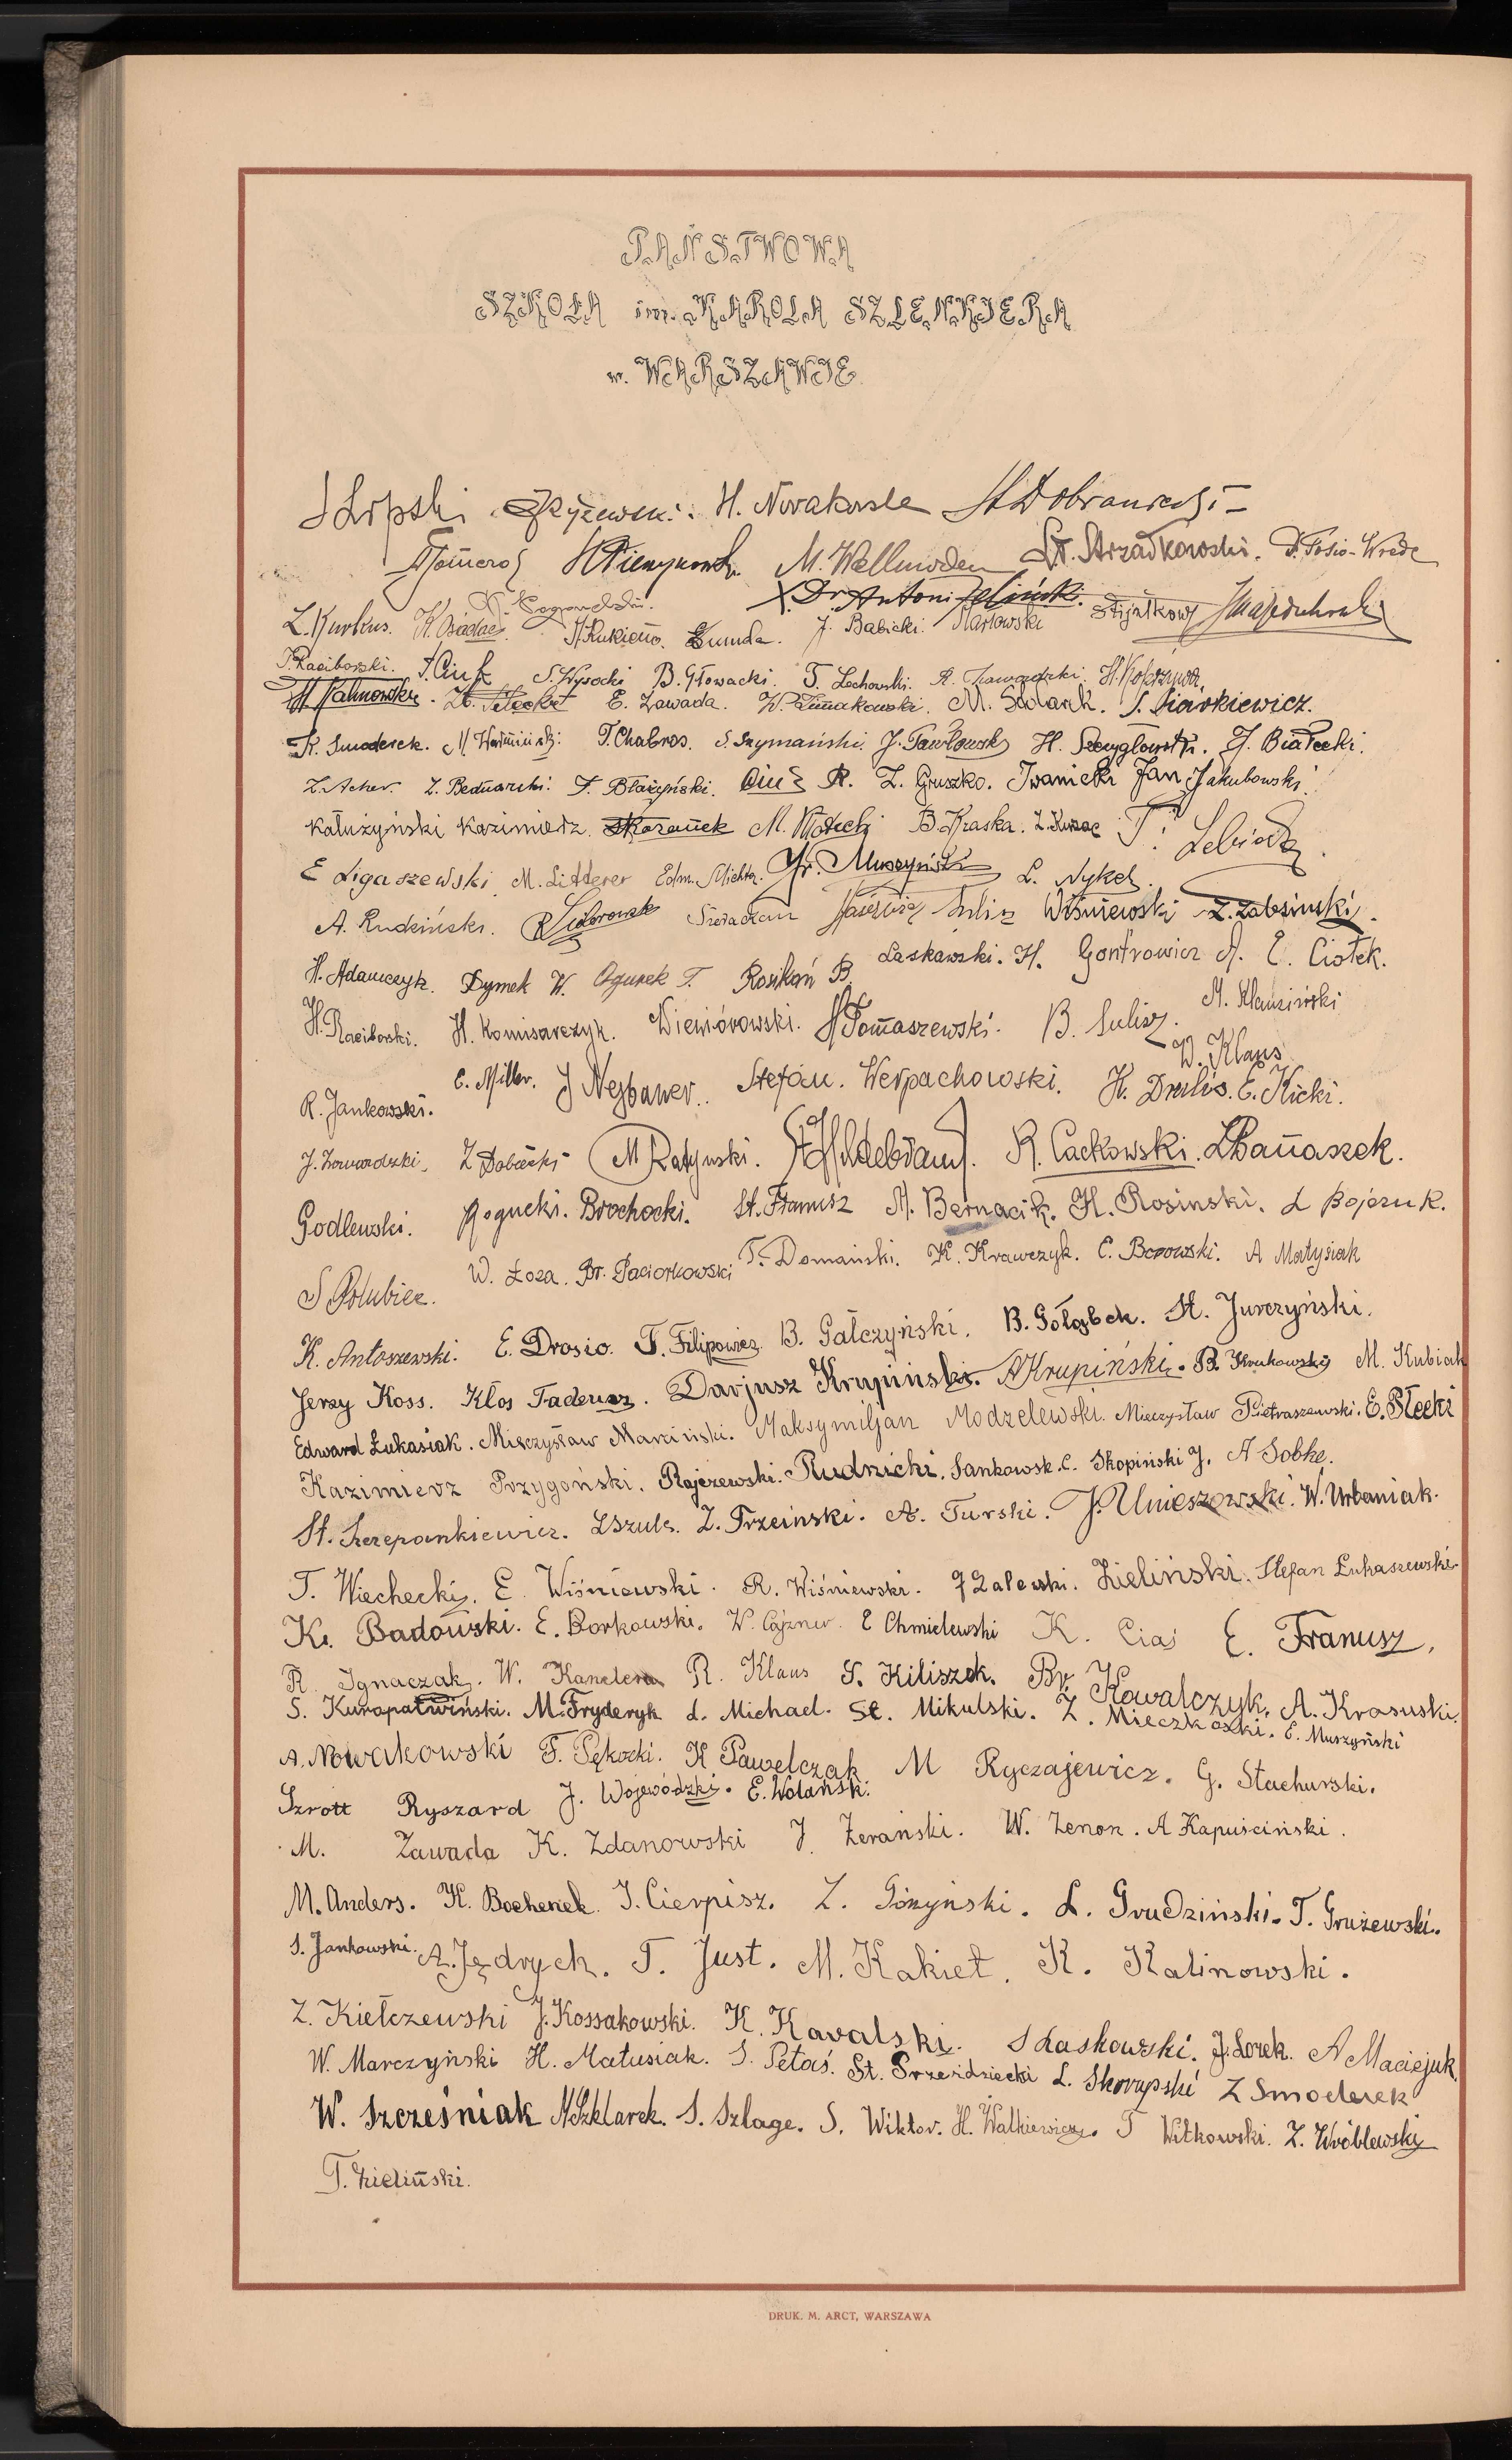 PAŃSTWOWA
SZKOŁA im. KAROLA SZLENKIERA
w. WARSZAWIE
H. Nowakowska St Dobraniecki
M. Wallmoden St. Strzałkowski. F. Fosio-Wrede
X. Dr. Antoni
Z. Kurkus. K. Osadac J. Rukieno. Żumda. J. Babicki. Markowski
T. Raciborski. S. Wysocki B. Głowacki. T. Lechowski. R. Zawadzki. H. Kołczynda
St Kalinowski. E. Zawada. M. Solarek. S. Piarkiewicz.
K. Smoderek. T. Chabros. S. Szymański. J. Pawłowski H. Szczygłowski. J. Białecki.
Z. Acher. Z. Bednarski. F. Błażyński. Ciuć R. Z. Gruszko. Iwanicki Jan Jakubowski
Kałużyński Kazimierz. M. Kłotecki B. Kraska. Z. Kurac T. Lebioda.
E Ligaszewski M. Litterer Edm. Michta. Gr. Muszyński L. Nykel.
A. Rudziński. R Sidorowski Sieraczan Kazimierz Sulisz Wiśniewski Z. Zalesiński.
H. Adamczyk. Dymek W. Ogurek T. Rosikoń B. Laskowski. H. Gontrowicz A. E. Ciołek.
H. Raciborski. H. Komisarczyk. Wiewiórowski. H Tomaszewski. B. Sulisz. M. Klamziński
R. Jankowski. E. Miller. J Nejbauer. Stefan. Werpachowski. H. Dralis. W. Klaus E. Kicki.
J. Zawadzki. Z Dobecki M Ratyński. St Hildebrand. R. Cackowski. L Banaszek.
Godlewski. Rogucki. Brochocki. St. Franusz A. Bernacik. H. Rosinski. L Bojczuk.
S Gołubiec. W. Łoza. Br. Paciorkowski T. Domański. K. Krawczyk. C. Borowski. A Matysiak
K. Antoszewski. E. Drosio. T. Filipowicz B. Gałczyński. B. Gołąbek. St. Jurczyński.
Jerzy Koss. Kłos Tadeusz. Darjusz Krupiński. A Krupiński. B. Krukowski M. Kubiak
Edward Łukasiak. Mieczysław Marciński. Maksymiljan Modzelewski. Mieczysław Pietraszewski. E. Płecki
Kazimierz Przygoński. Rajczewski. Rudnicki. Sankowsk. C. Skopiński J. A Sobke.
St. Szczepankiewicz. L Szulc. Z. Trzciński. A. Turski. J. Unieszowski. W. Urbaniak.
T. Wiechecki. E. Wiśniewski. R. Wiśniewski. J Zalewski. Zieliński. Stefan Łukaszewski
K. Badowski. E. Borkowski. W. Cajzner. E Chmielewski K. Ciaś E. Franusz.
R. Ignaczak. W. Kanclera R. Klaus S. Kiliszek. Br. Kowalczyk. A. Krasuski.
S. Kuropatwiński. M. Fryderyk d. Michael. St. Mikulski. Z. Mieczkowski. E. Muszyński
A. Nowakowski F. Pękocki. K Pawelczak M Ryczajewicz. G. Stachurski.
Szrott Ryszard J. Wojewódzki. E. Wolański.
M. Zawada K. Zdanowski J. Żerański. W. Zenon. A Kapuściński.
M. Anders. K. Bochenek. J. Cierpisz. Z. Giżyński. L. Grudziński. T. Grużewski.
S. Jankowski. A. Jędrych. T. Just. M. Kakiet. K. Kalinowski.
Z. Kiełczewski J. Kossakowski. K. Kavalski. S Laskowski. J. Lorek. A Maciejuk.
W. Marczyński H. Matusiak. S. Petaś. St. Przeździecki L. Skorupski Z Smoderek
W. Szcześniak N Szklarek. S. Szlage. S. Wiktor. H. Walkiewicz. T Witkowski. Z. Wróblewski
T. Zieliński.
DRUK. M. ARCT, WARSZAWA